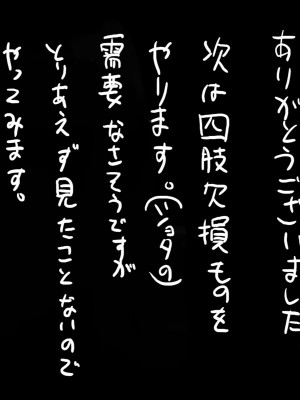 ありがとうございました
次は四肢欠損ものを
やります。(ショタの)
需要なさそうですが
とりあえず見たことないので
やってみます。